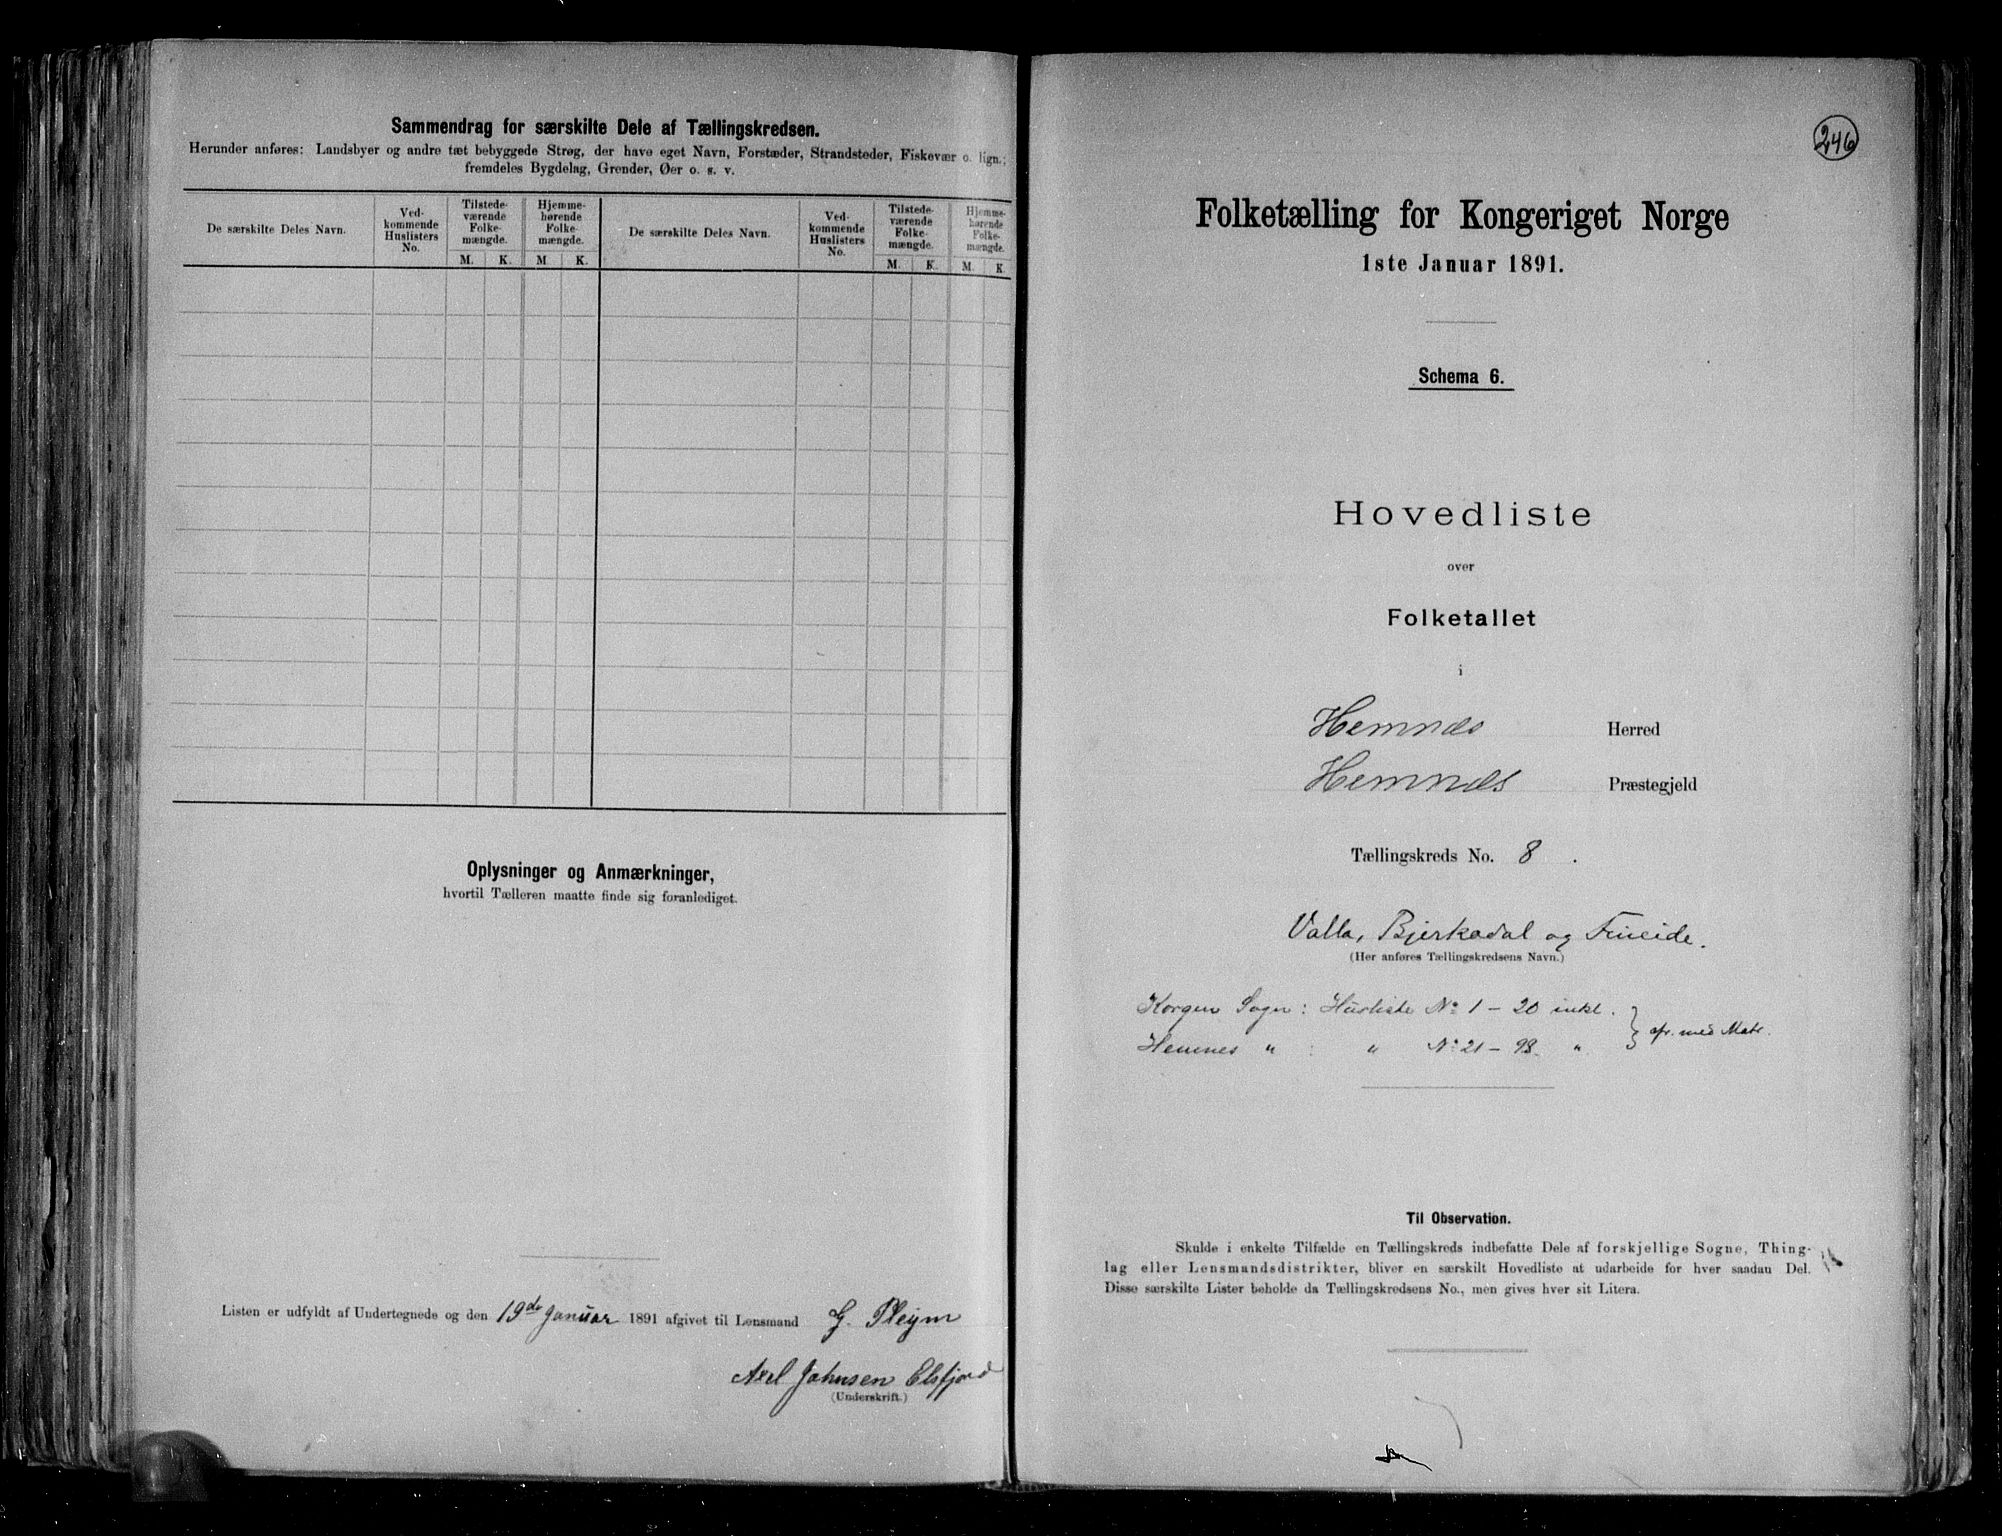 Sammendrag for særskilte Dele af Tællingskredsen.
Herunder anføres: Landsbyer og andre tæt bebyggede Strøg, der have eget Navn, Forstæder, Strandsteder, Fiskevær o. lign.;
fremdeles Bygdelag, Grender, Øer o. s. v.
De særskilte Deles Navn.
Ved-
kommende
Huslisters
No.
Tilstede-
værende
Folke-
mængde.
M. K.
Hjemme-
hørende
Folke-
mængde.
M K.
De særskilte Deles Navn.
Ved-
kommende
Huslisters
No.
Tilstede-
værende
Folke-
mængde.
M. K.
Hjemme-
hørende
Folke-
mængde.
M. K.
Oplysninger og Anmærkninger,
hvortil Tælleren maatte finde sig foranlediget.
Listen er udfyldt af Undertegnede og den 19de Januar 1891 afgivet til Lensmand G. Pleym
Axel Johnsen Elsfjord
(Underskrift.)
246
Folketælling for Kongeriget Norge
1ste Januar 1891.
Schema 6.
Hovedliste
over
Folketallet
i
Hemnæs Herred
Hemnæs Præstegjeld
Tællingskreds No. 8.
Valla, Bjerkadal og Fineide.
(Her anføres Tællingskredsens Navn.)
Korgen Sogn: Husliste No 1 – 20 inkl.
Hemnes " : " No 21 – 98 "
} ofr. med Matr.
Til Observation.
Skulde i enkelte Tilfælde en Tællingskreds indbefatte Dele af forskjellige Sogne, Thing-
lag eller Lensmandsdistrikter, bliver en særskilt Hovedliste at udarbeide for hver saadan Del.
Disse særskilte Lister beholde da Tællingskredsens No., men gives hver sit Litera.